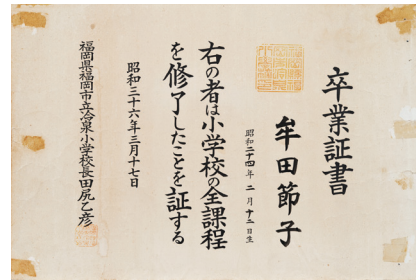 卒業証書
牟田節子
昭和二十四年二月十二日生
右の者は小学校の全課程
を修了したことを証する
昭和三十六年三月十七日
福岡県福岡市立冷泉小学校長田尻乙彦